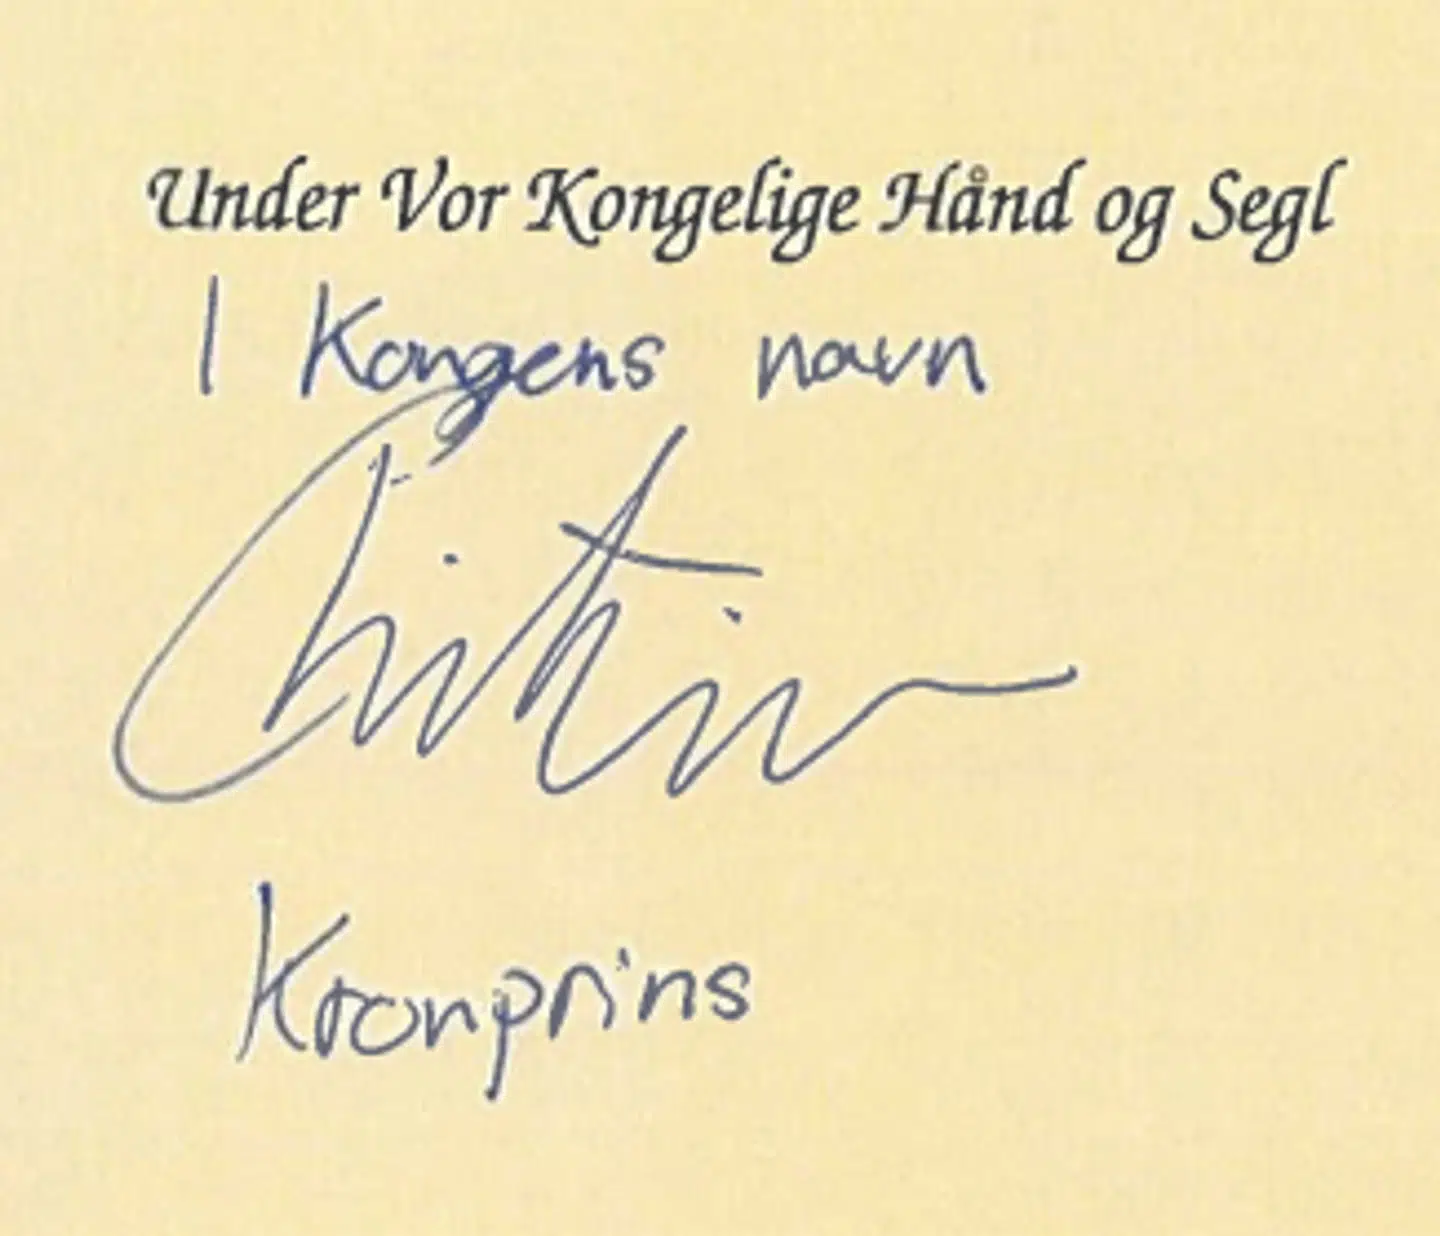 Under Vor Kongelige Hånd og Segl
I Kongens navn
Christian
Kronprins